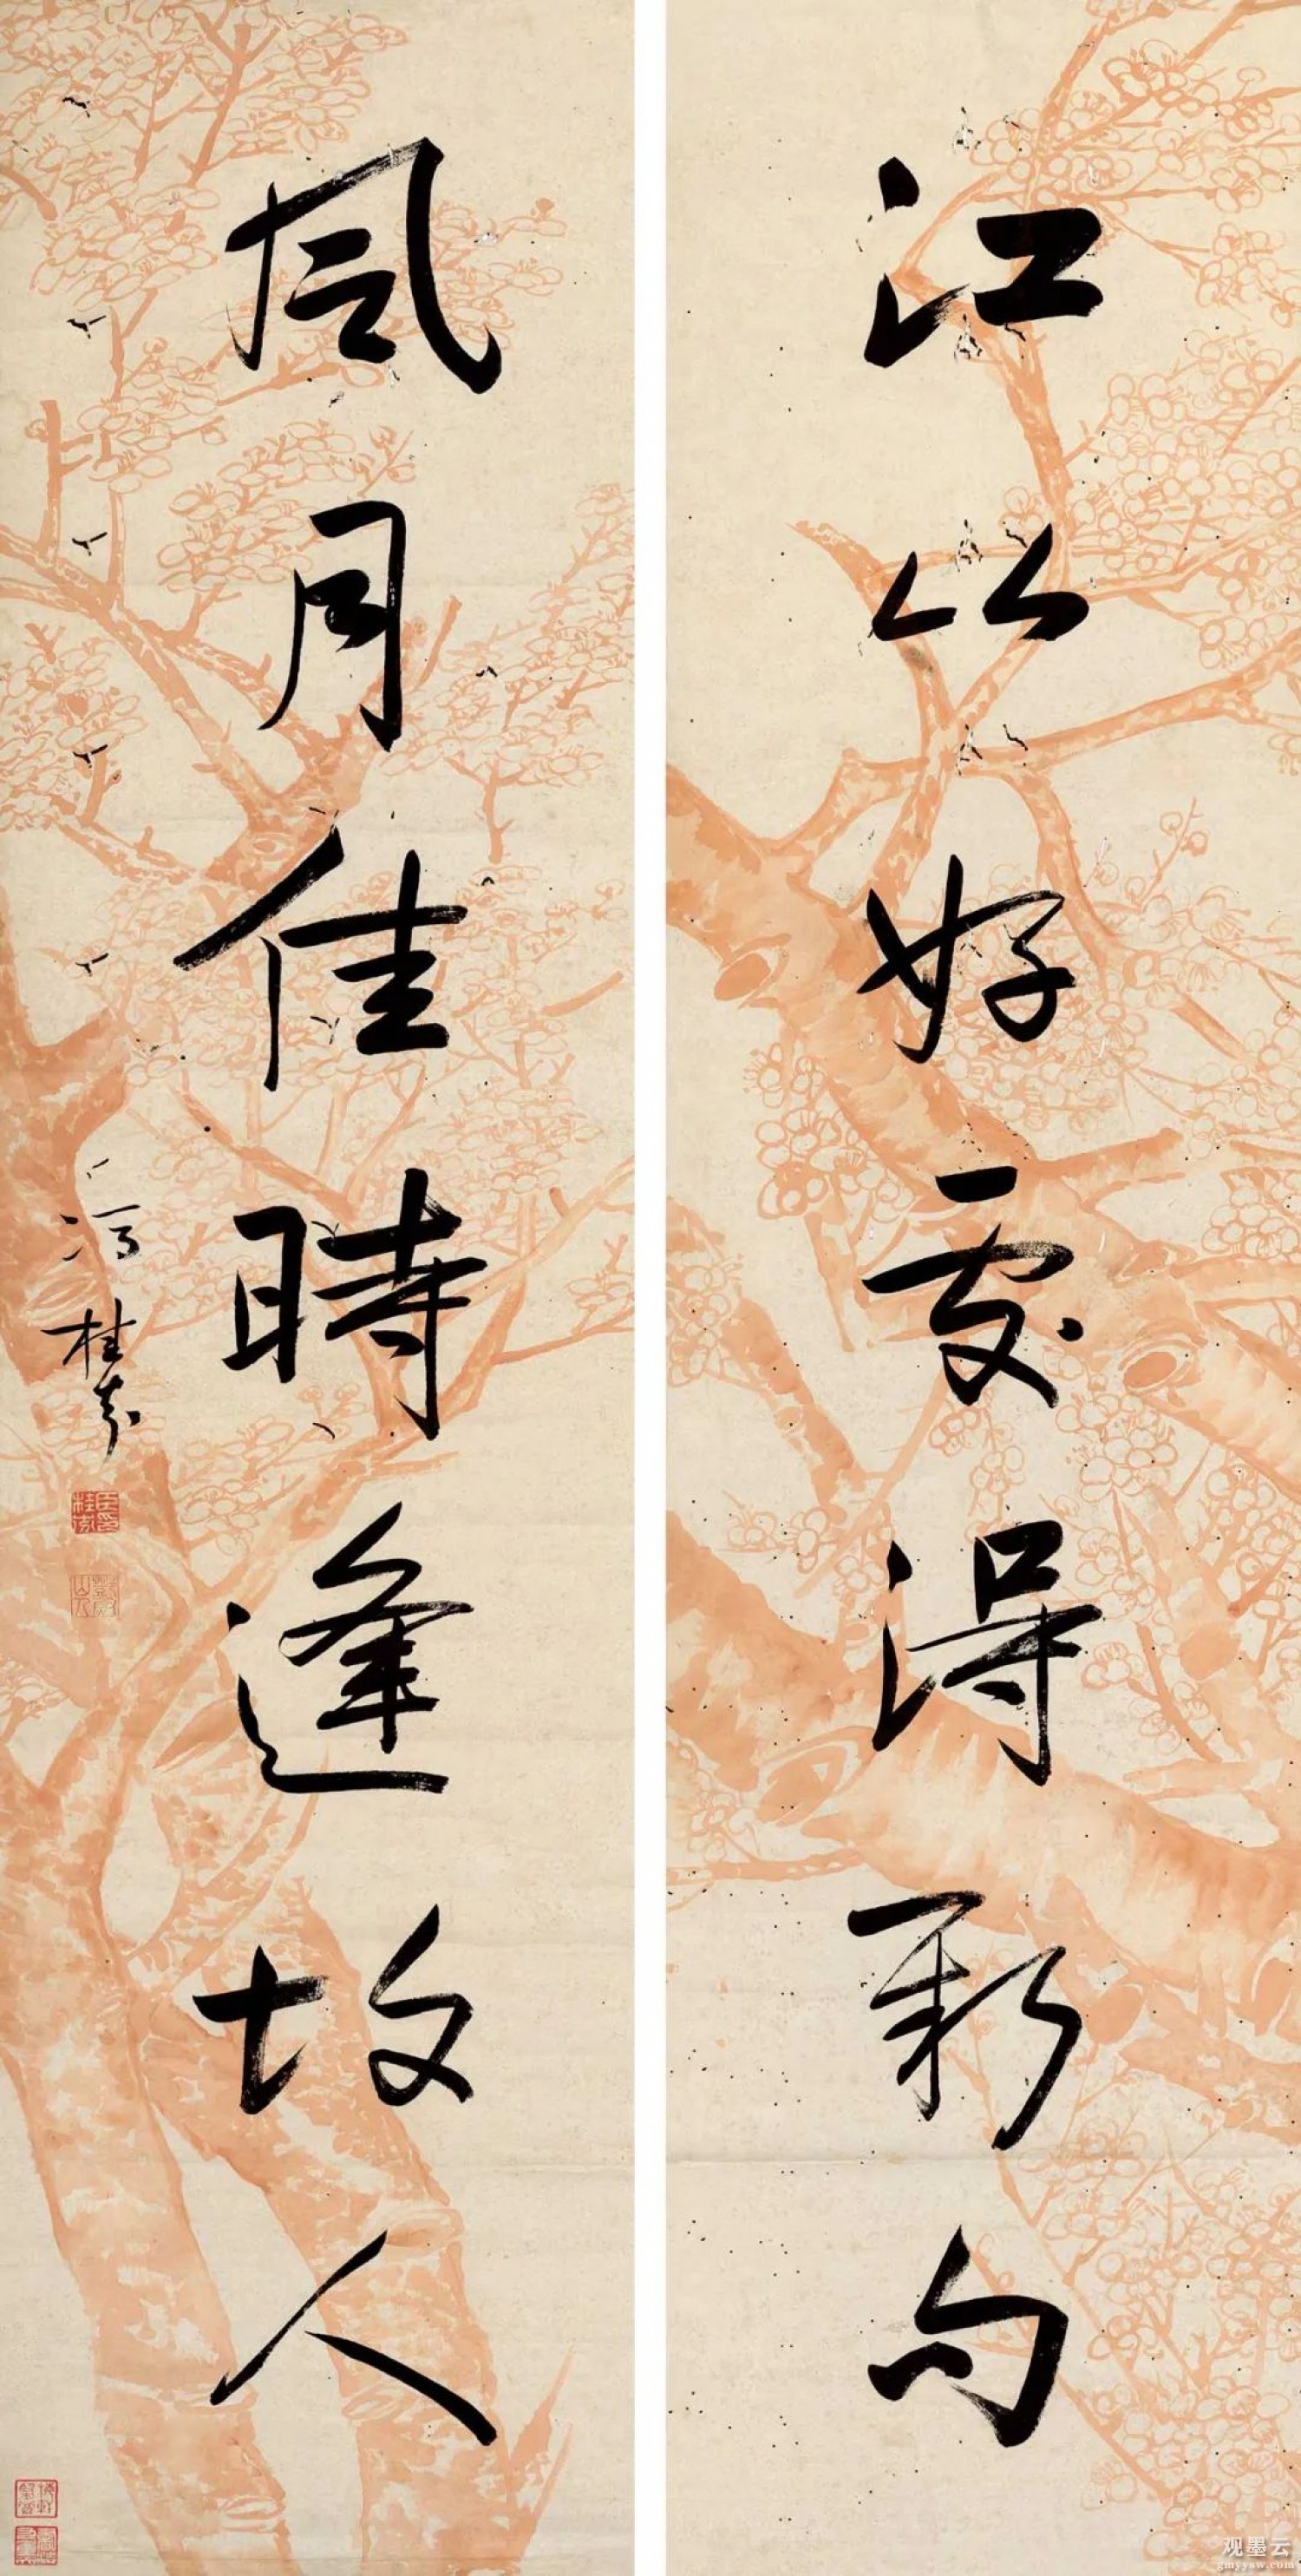 江山好處得新句
風月佳時逢故人
馮桂芬
臣印桂芬
观墨云
gmyysw.com